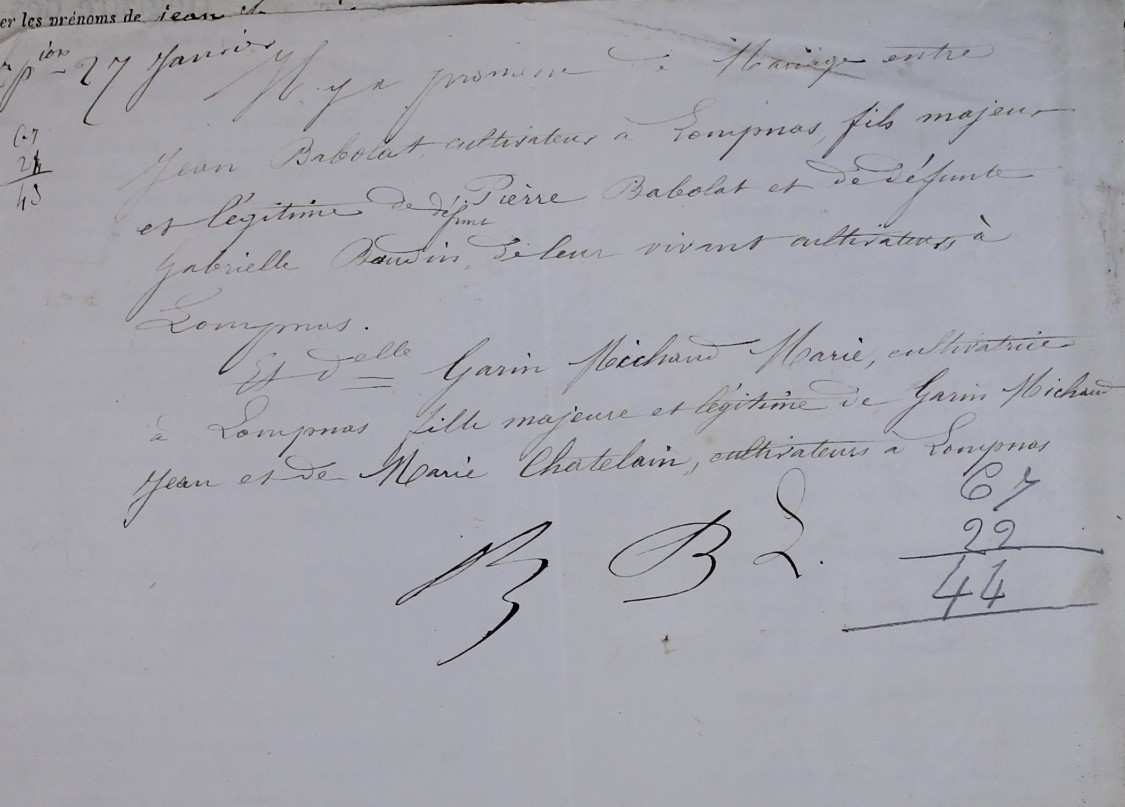 er les prénoms de jean
pion 27 Janvier
Il y a promesse de Mariage entre
Jean Babolat, cultivateur à Lompnas, fils majeur
et légitime de défunt Pierre Babolat et de défunte
Gabrielle Baudin, de leur vivant cultivateurs à
Lompnas.
Et delle Garin Michaud Marie, cultivatrice
à Lompnas fille majeure et légitime de Garin Michaud
Jean et de Marie Chatelain, cultivateurs à Lompnas
67
22
44
B B L.